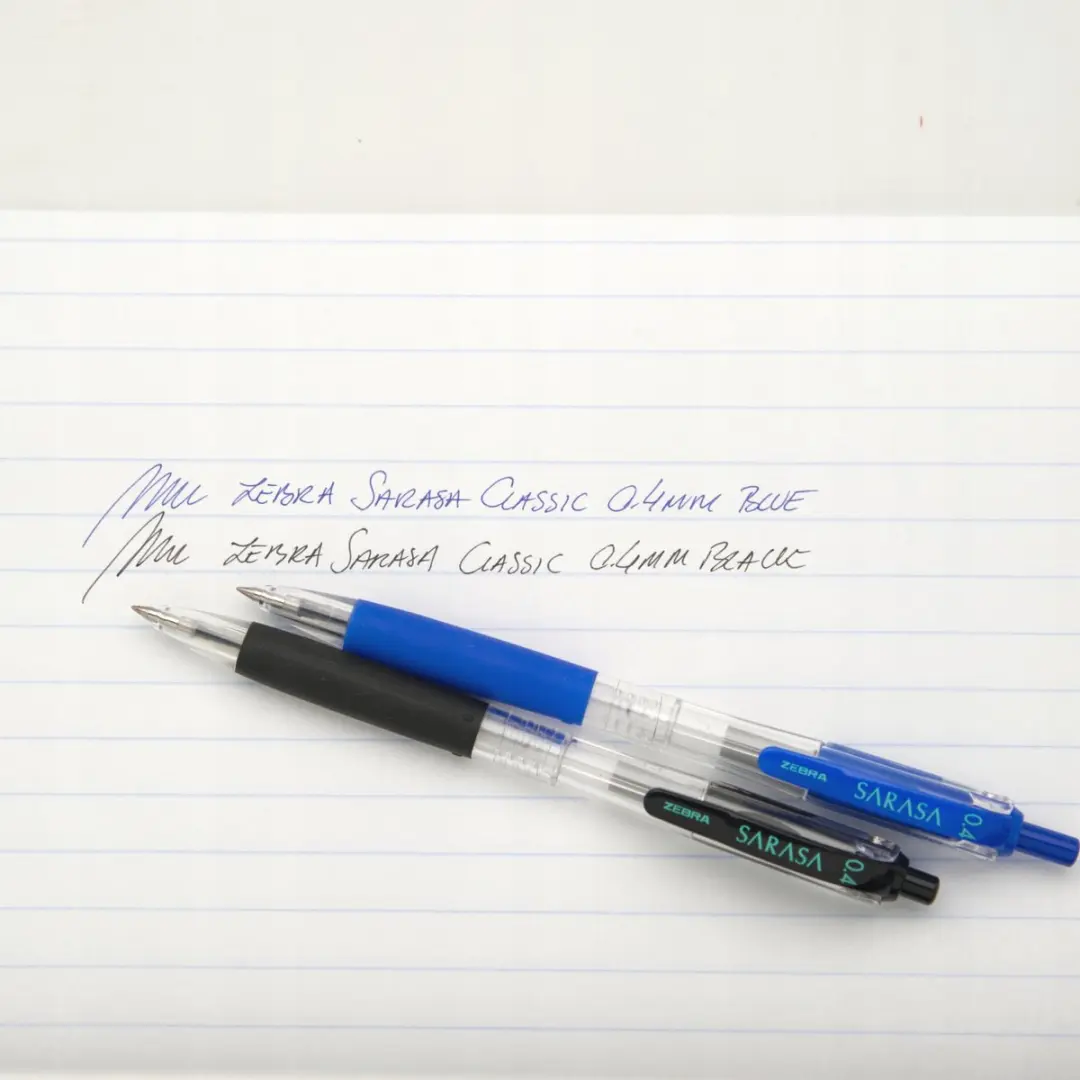 ZEBRA SARASA CLASSIC 0.4MM BLUE
ZEBRA SARASA CLASSIC 0.4MM BLACK
ZEBRA SARASA 0.4
ZEBRA SARASA 0.4